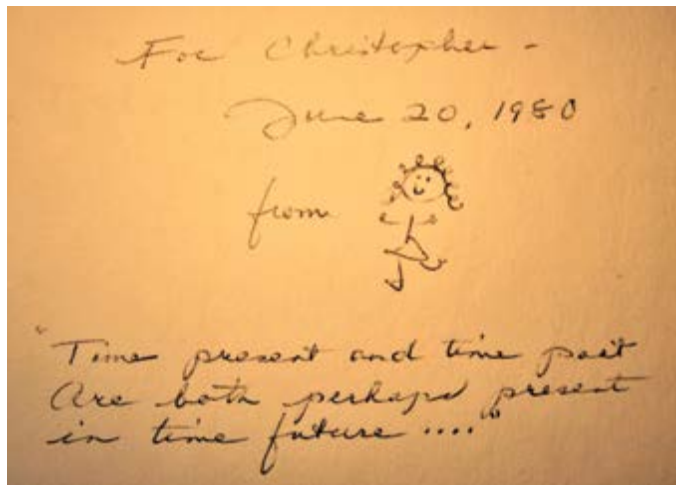 For Christopher -
June 20, 1980
from
"Time present and time past
Are both perhaps present
in time future ...."